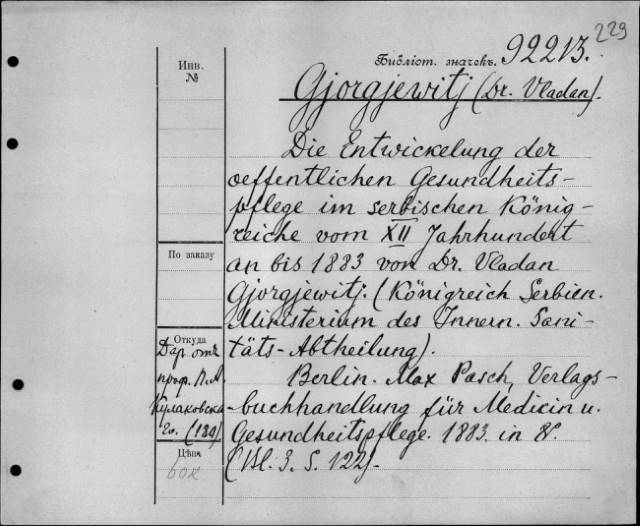 229
Библіот. значекъ. 92213.
Gjorgjewitj (Dr. Vladan).
Die Entwickelung der
oeffentlichen Gesundheits-
pflege im serbischen König-
reiche vom XII Jahrhundert
an bis 1883 von Dr. Vladan
Gjorgjewitj. (Königreich Serbien.
Ministerium des Innern. Sani-
täts-Abtheilung).
Berlin. Max Pasch, Verlags-
-buchhandlung für Medicin u.
Gesundheitspflege. 1883. in 8°.
(Bl. 3. S. 122).
Инв.
№
По заказу
Откуда
Даръ отъ
проф. П. А.
Кулаковска
го.
Цѣна
60к